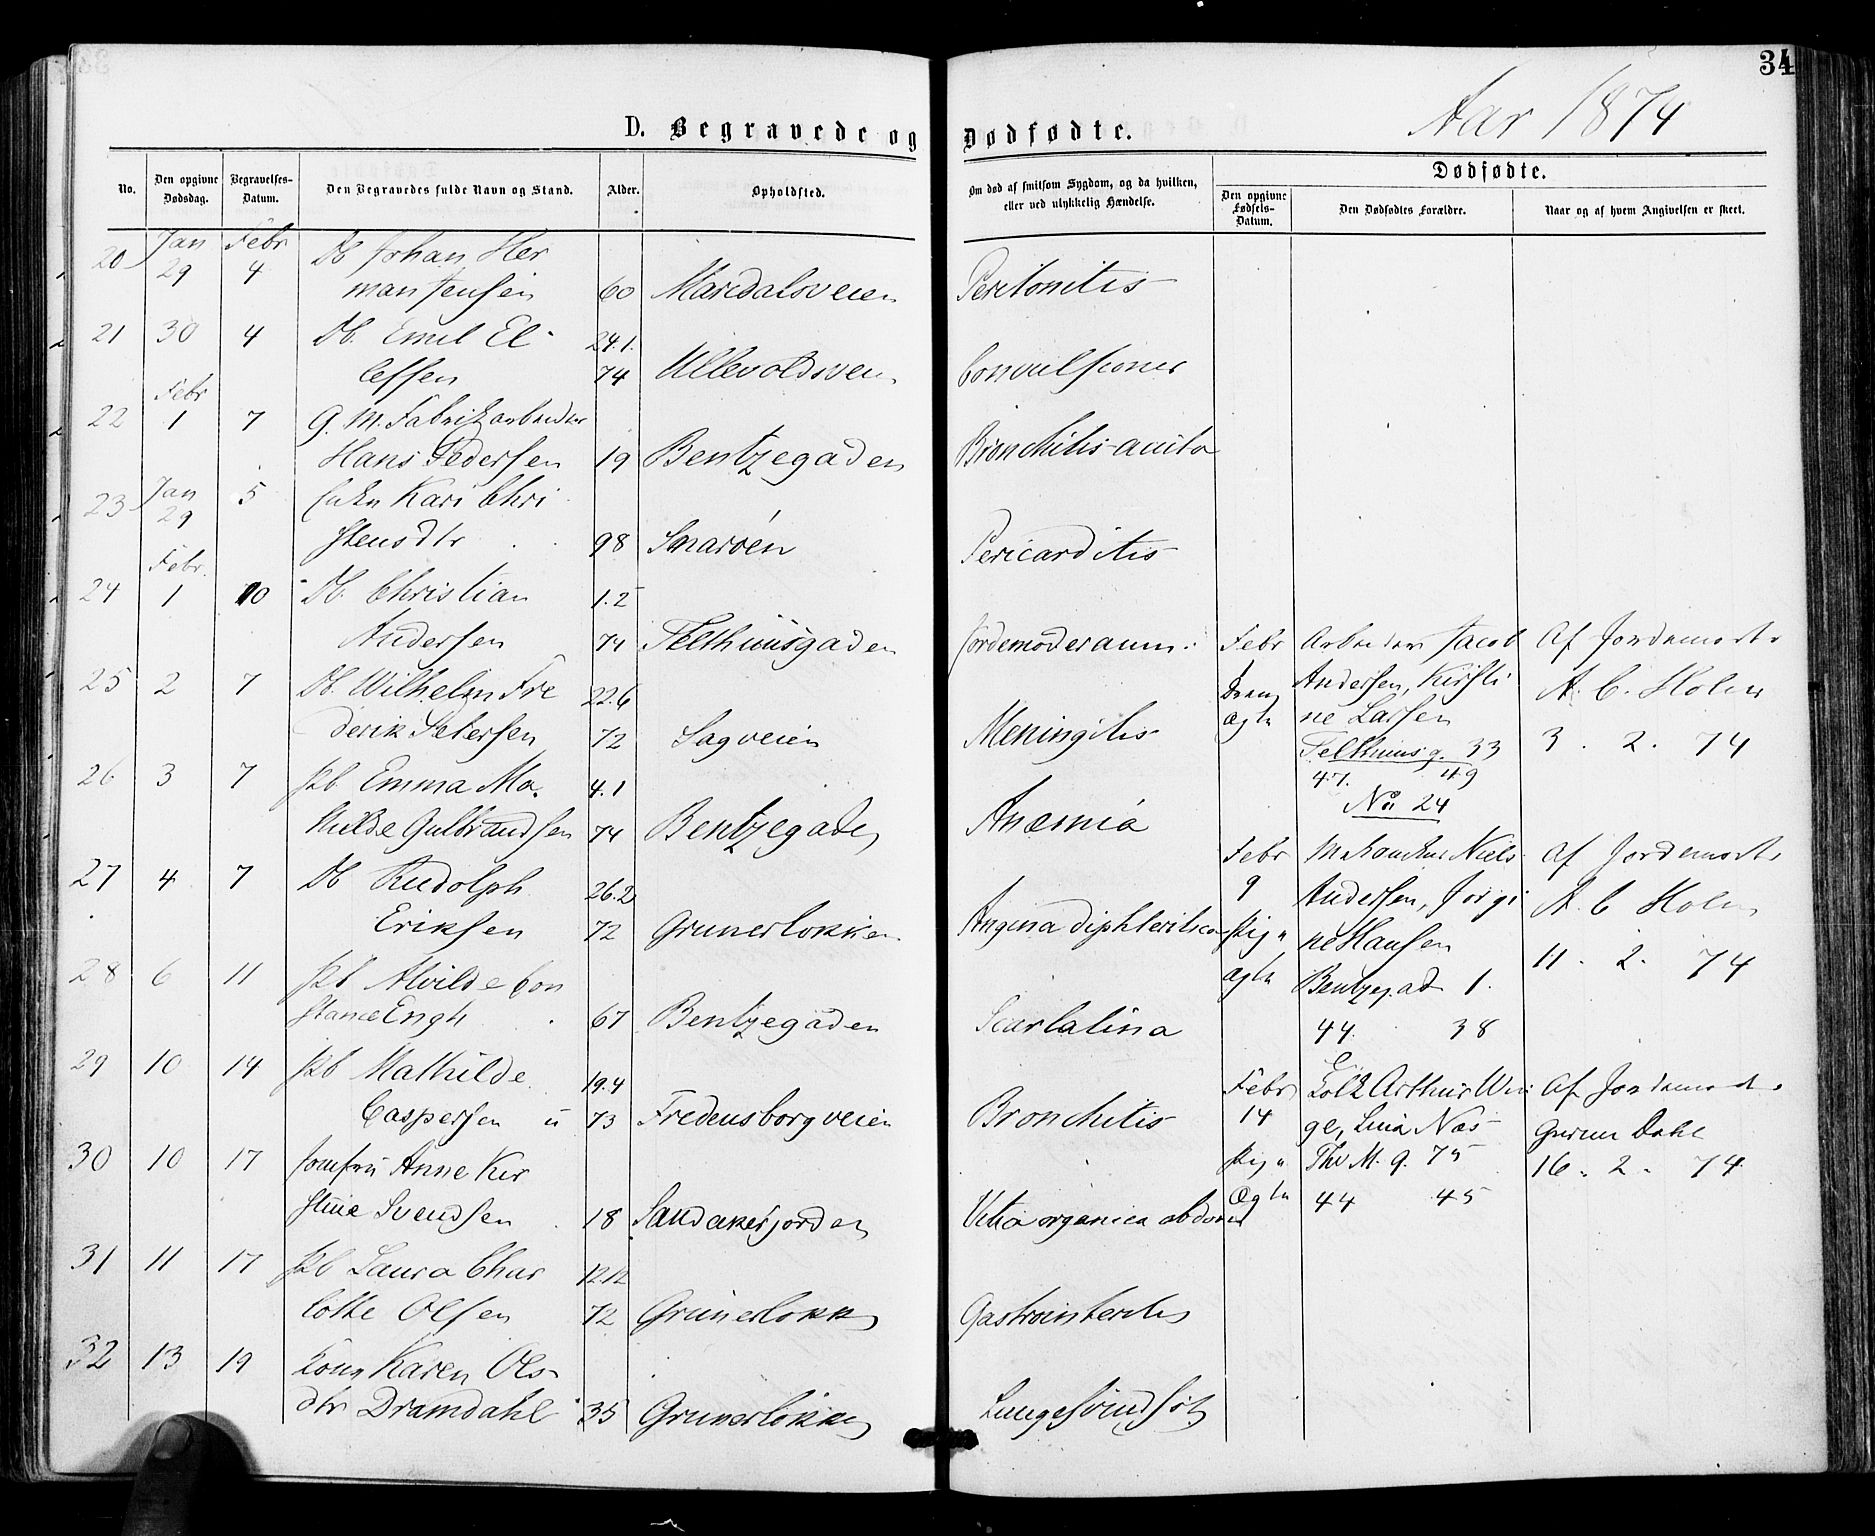 34
Aar 1874
D. Begravede og Dødfødte.
No.
Den opgivne Dødsdag.
Begravelses-Datum.
Den Begravedes fulde Navn og Stand.
Alder.
Opholdsted.
Om død af smitsom Sygdom, og da hvilken, eller ved ulykkelig Hændelse.
Dødfødte.
Den opgivne Fødsels-Datum.
Den Dødfødtes Forældre.
Naar og af hvem Angivelsen er skeet.
Jan Febr
20 29 4 Db Johan Her
man Jensen 60 Maridalsveien Peritonitis
21 30 4 Db. Emil El 24.1.
lefsen 74 Ullevoldsvein Convulsioner
Febr
22 1 7 G. M. Fabrikarbeider
Hans Pedersen 19 Bentzegaden Bronchitis acuta
Jan
23 29 5 Enke Kari Chri
stensdtr 98 Snarøen Pericarditis
Febr.
24 1 10 Db. Christian 1.2
Andersen 74 Telthusgaden Jordemoderanm:
25 2 7 Db. Wilhelm Fre 22.6
derik Petersen 72 Sagveien Meningitis
26 3 7 Pb Emma Ma 4.1
thilde Gulbrandsen 74 Bentzegaden Anæmia
27 4 7 Db Rudolph 26.2
Eriksen 72 Grunerløkken Angina diphteritica
28 6 11 Pb Alvilde Con
stance Engh 67 Bentzegaden Scarlatina
29 10 14 Pb Mathilde 19.4
Caspersen u 73 Fredensborgveien Bronchitis
30 10 17 Jomfru Anne Kir
stine Svendsen 18 Sandakerjorden Vitia organica abdom
31 11 17 Pb Laura Char 12.12
lotte Olsen 72 Grünerløkken Gastrointeritis
32 13 19 Kone Karen Ols
dtr Dramdahl 35 Grunerløkken Lungesvindsot
Febr
Dreng
Ægte
Arbeider Jacob
Andersen, Kirsti
ne Larsen
Telthusg. 33
47. 49
No 24
Af Jordemoder
A. C. Holm
3. 2. 74
Febr
9
Pige
Ægte
Niels
Andersen, Jørgi
ne Hansen
Bentzegad 1.
44. 38
Af Jordemoder
A. C Holm
11. 2. 74
Febr
14
Pige
Ægte
Arthur Win
ge, Lina Næs
Thv M. g. 75
44 45
Af Jordemoder
Dahl
16. 2. 74